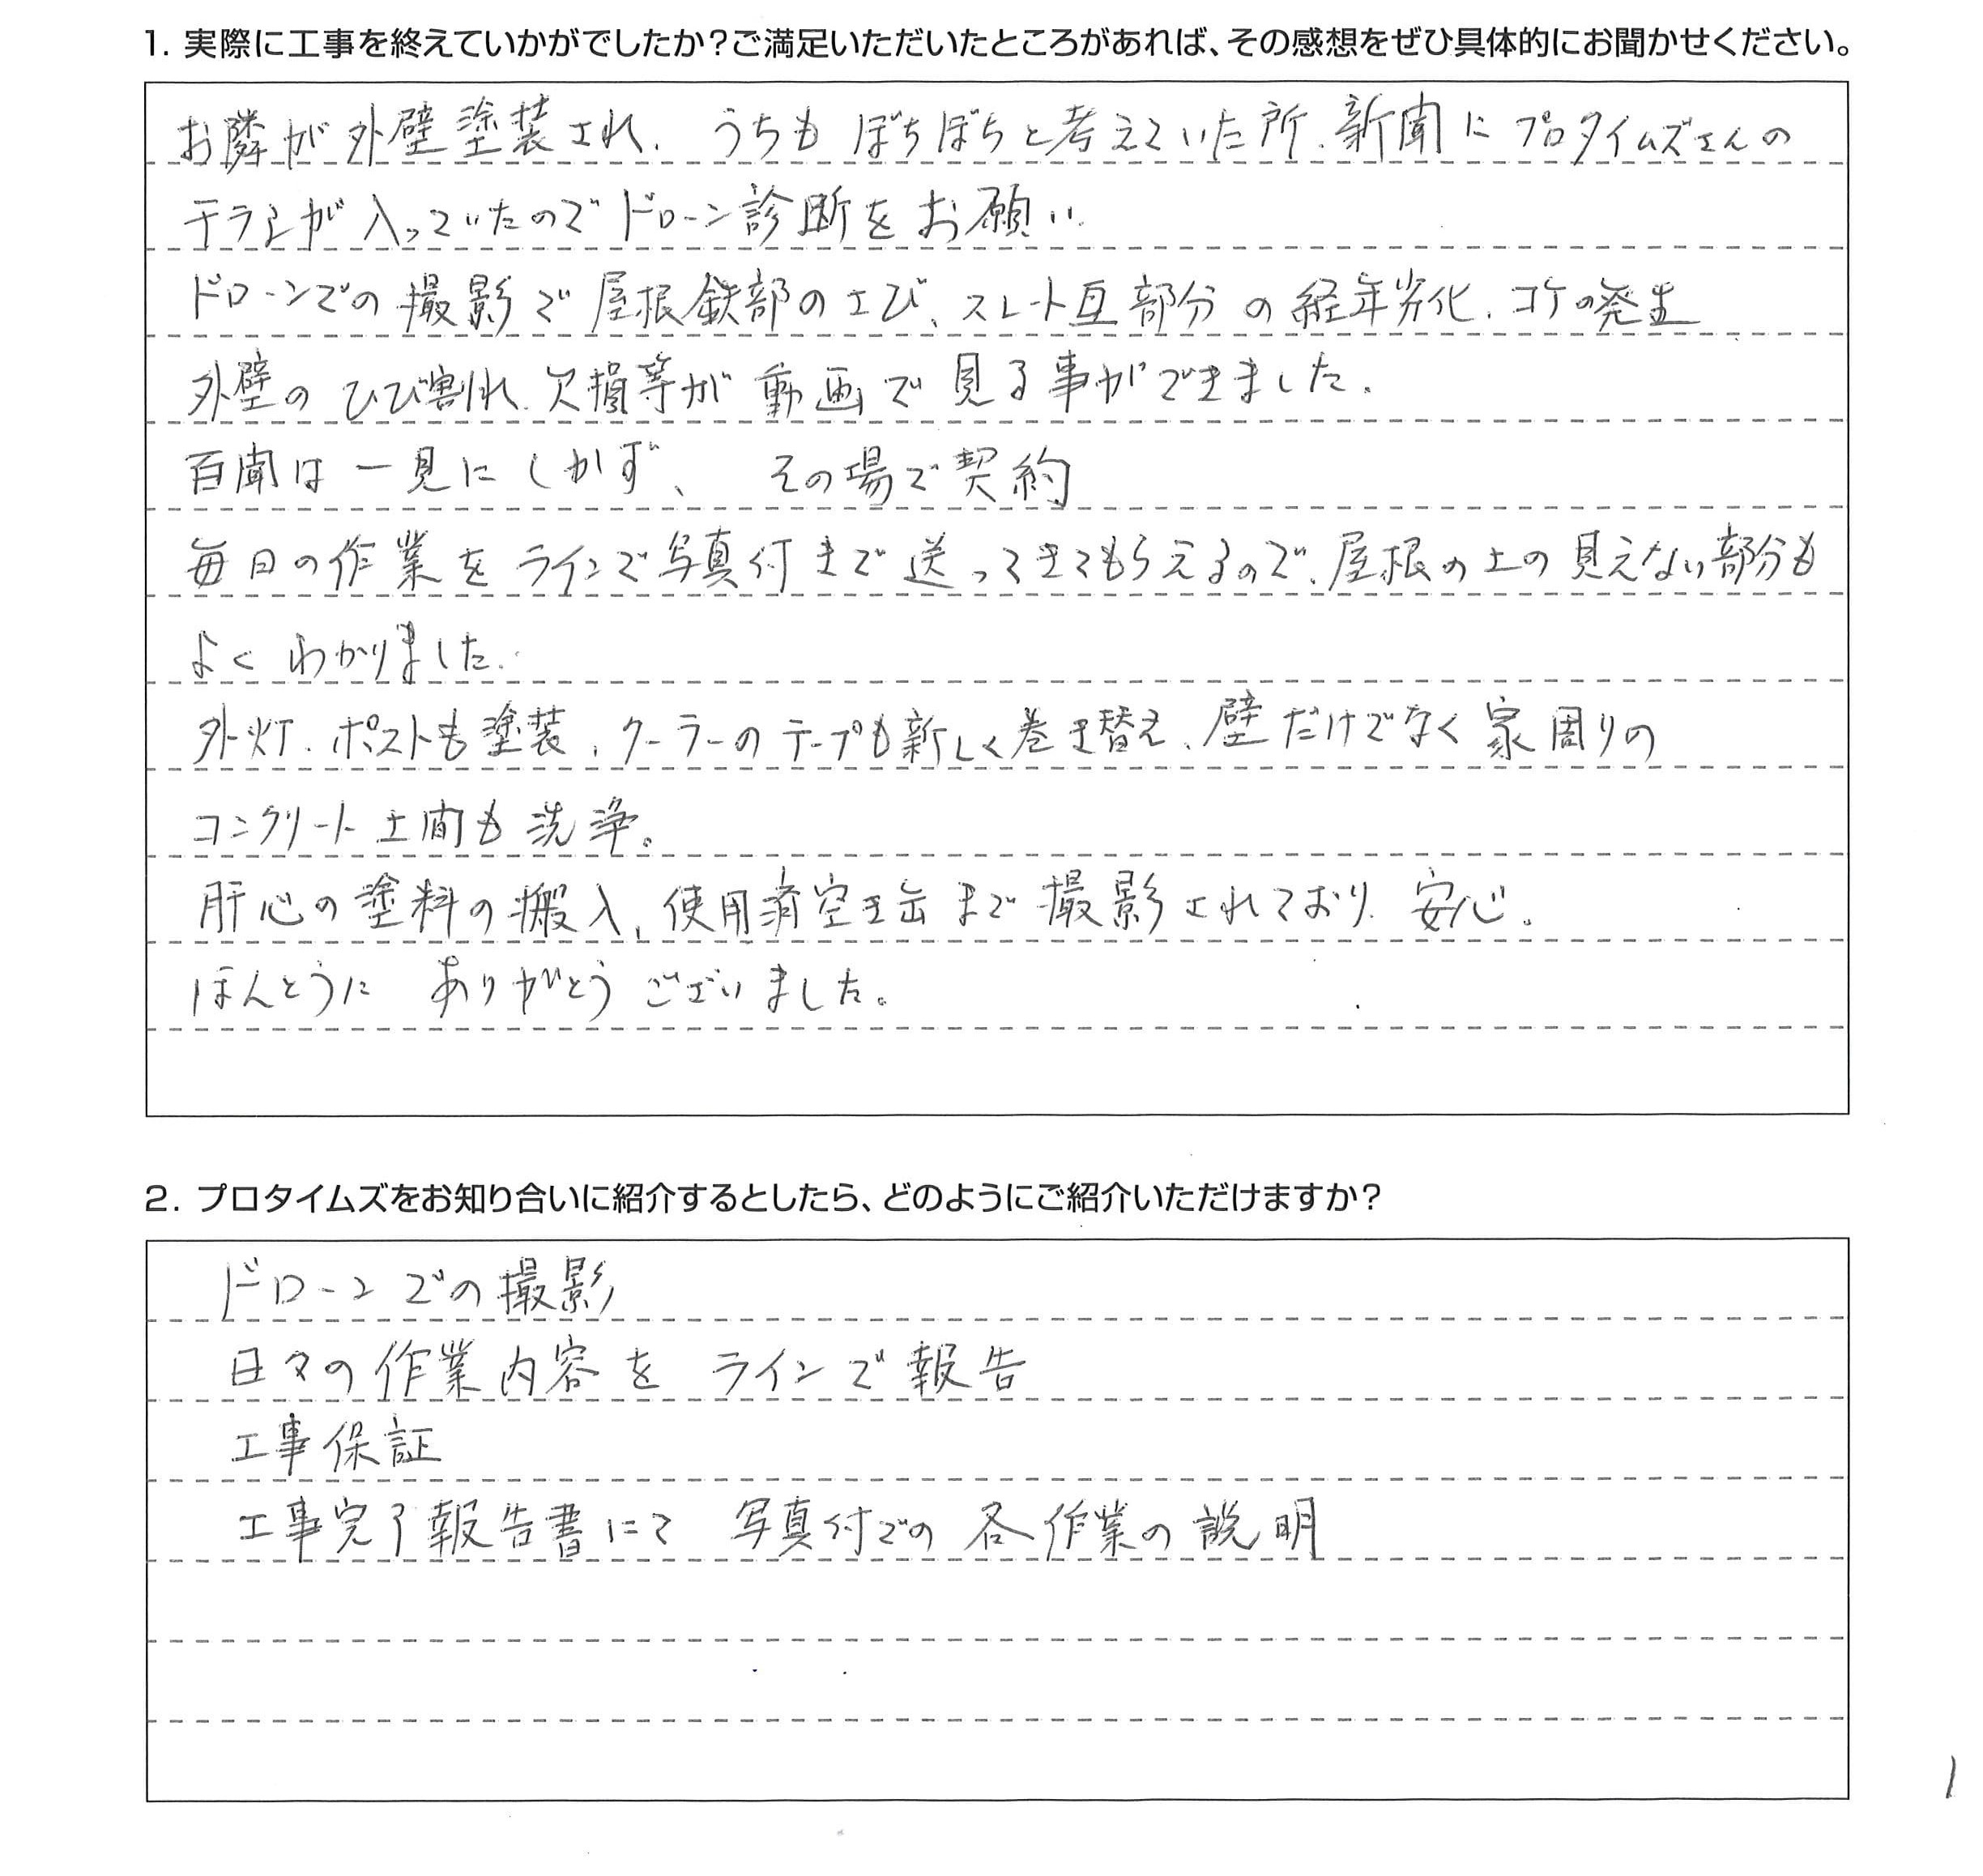 1. 実際に工事を終えていかがでしたか?ご満足いただいたところがあれば、その感想をぜひ具体的にお聞かせください。
お隣が外壁塗装され、うちもぼちぼちと考えていた所、新聞にプロタイムズさんの
チラシが入っていたのでドローン診断をお願い。
ドローンでの撮影で屋根鉄部のさび、スレート瓦部分の経年劣化、コケの発生
外壁のひび割れ、欠損等が動画で見る事ができました。
百聞は一見にしかず、その場で契約
毎日の作業をラインで写真付きで送ってきてもらえるので、屋根の上の見えない部分も
よくわかりました。
外灯、ポストも塗装、クーラーのテープも新しく巻き替え、壁だけでなく家周りの
コンクリート土間も洗浄。
肝心の塗料の搬入、使用済空き缶まで撮影されており、安心。
ほんとうに ありがとうございました。
2. プロタイムズをお知り合いに紹介するとしたら、どのようにご紹介いただけますか?
ドローンでの撮影
日々の作業内容を ラインで報告
工事保証
工事完了報告書にて 写真付での各作業の説明